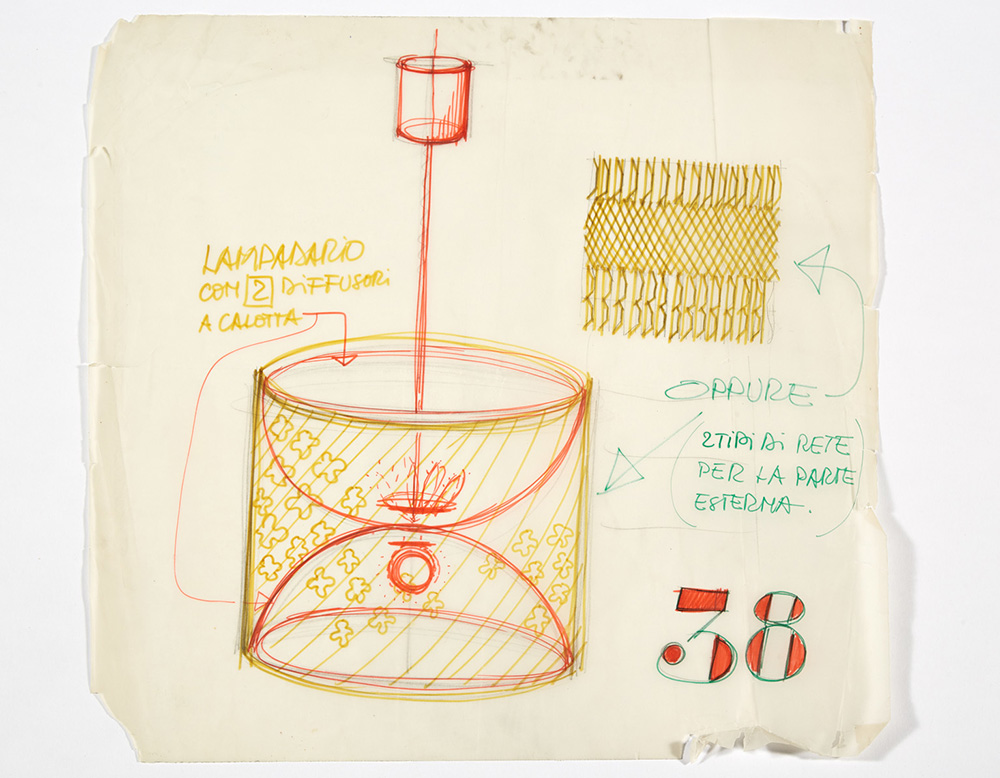 LAMPADARIO
CON 2 DIFFUSORI
A CALOTTA
OPPURE
(2 TIPI DI RETE
PER LA PARTE
ESTERNA.)
38